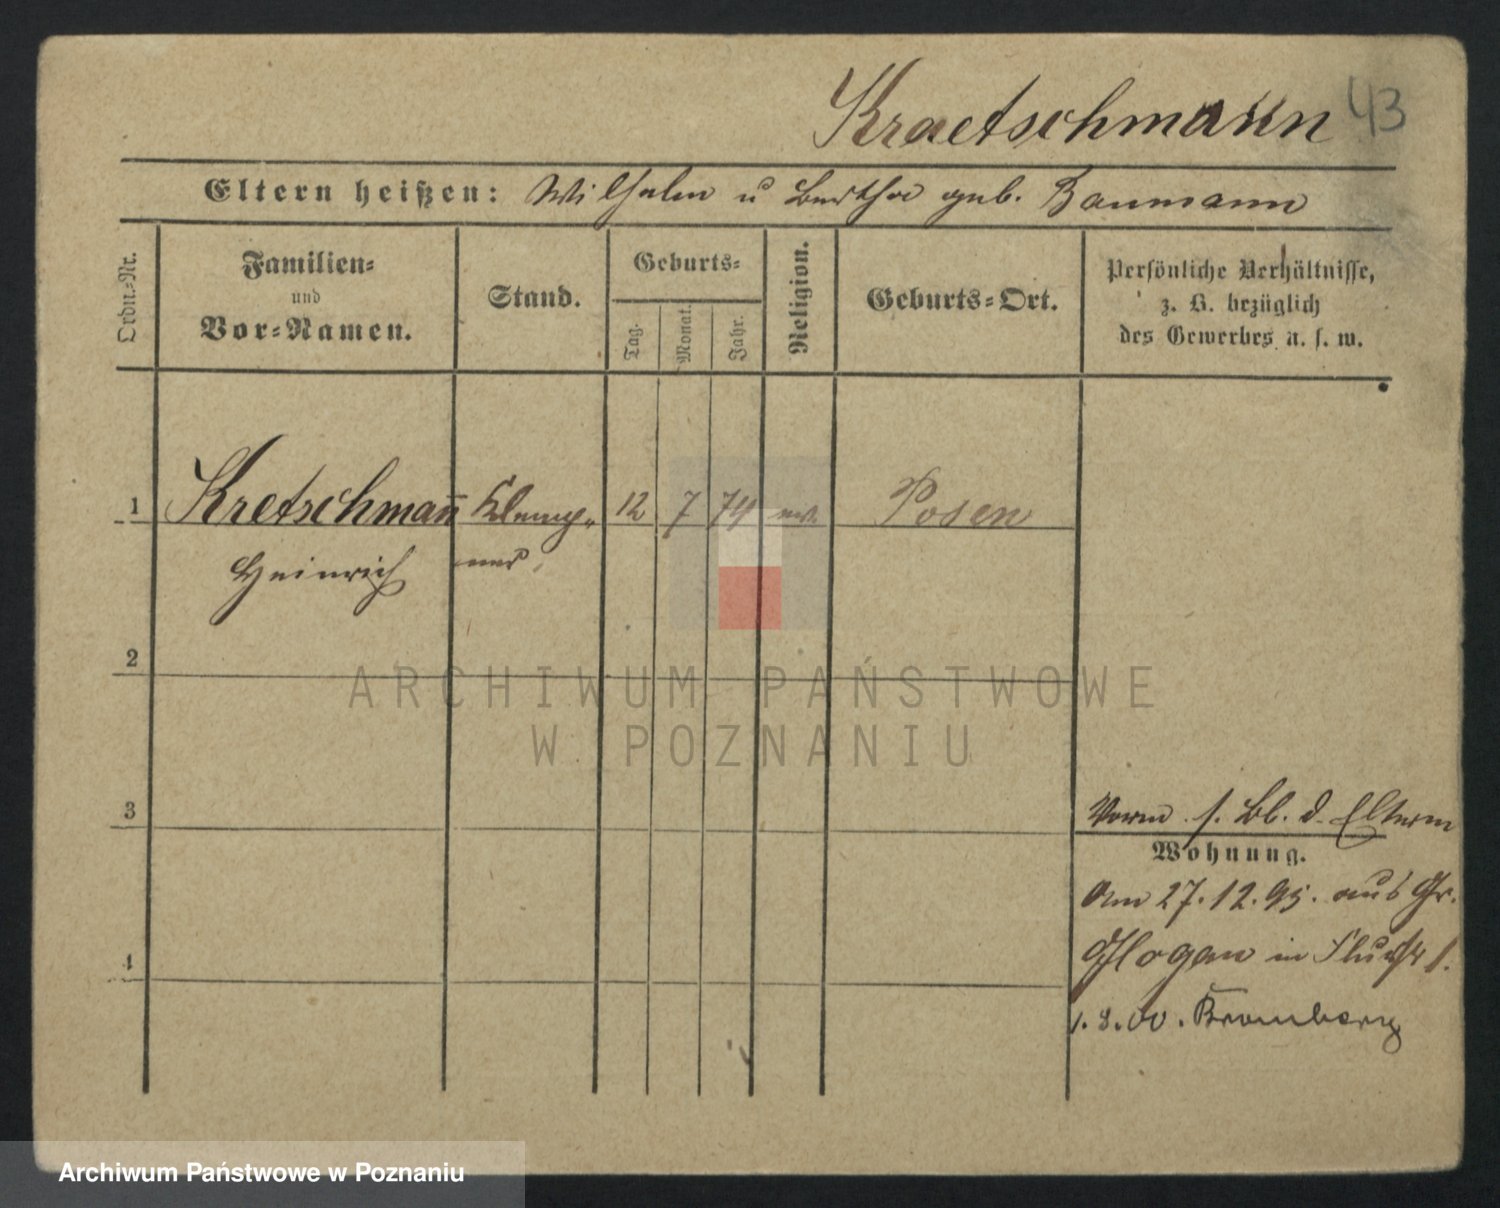 Kraetschmann 43
Eltern heißen: Wilhelm u Bertha geb. Baumann
Ordn.-Nr.
Familien-
und
Vor-Namen.
Stand.
Geburts-
Tag.
Monat.
Jahr.
Religion.
Geburts-Ort.
Persönliche Verhältnisse,
z. B. bezüglich
des Gewerbes u. s. w.
1 Kretschman̅ Klemp- 12 7 74 ev. Posen
Heinrich ner
2
ARCHIWUM PAŃSTWOWE
W POZNANIU
3
Vorm s. Bl. d. Eltern
Wohnung.
Am 27.12.95. aus Gr.
Glogau in
4
1.8.00. Bromberg
Archiwum Państwowe w Poznaniu